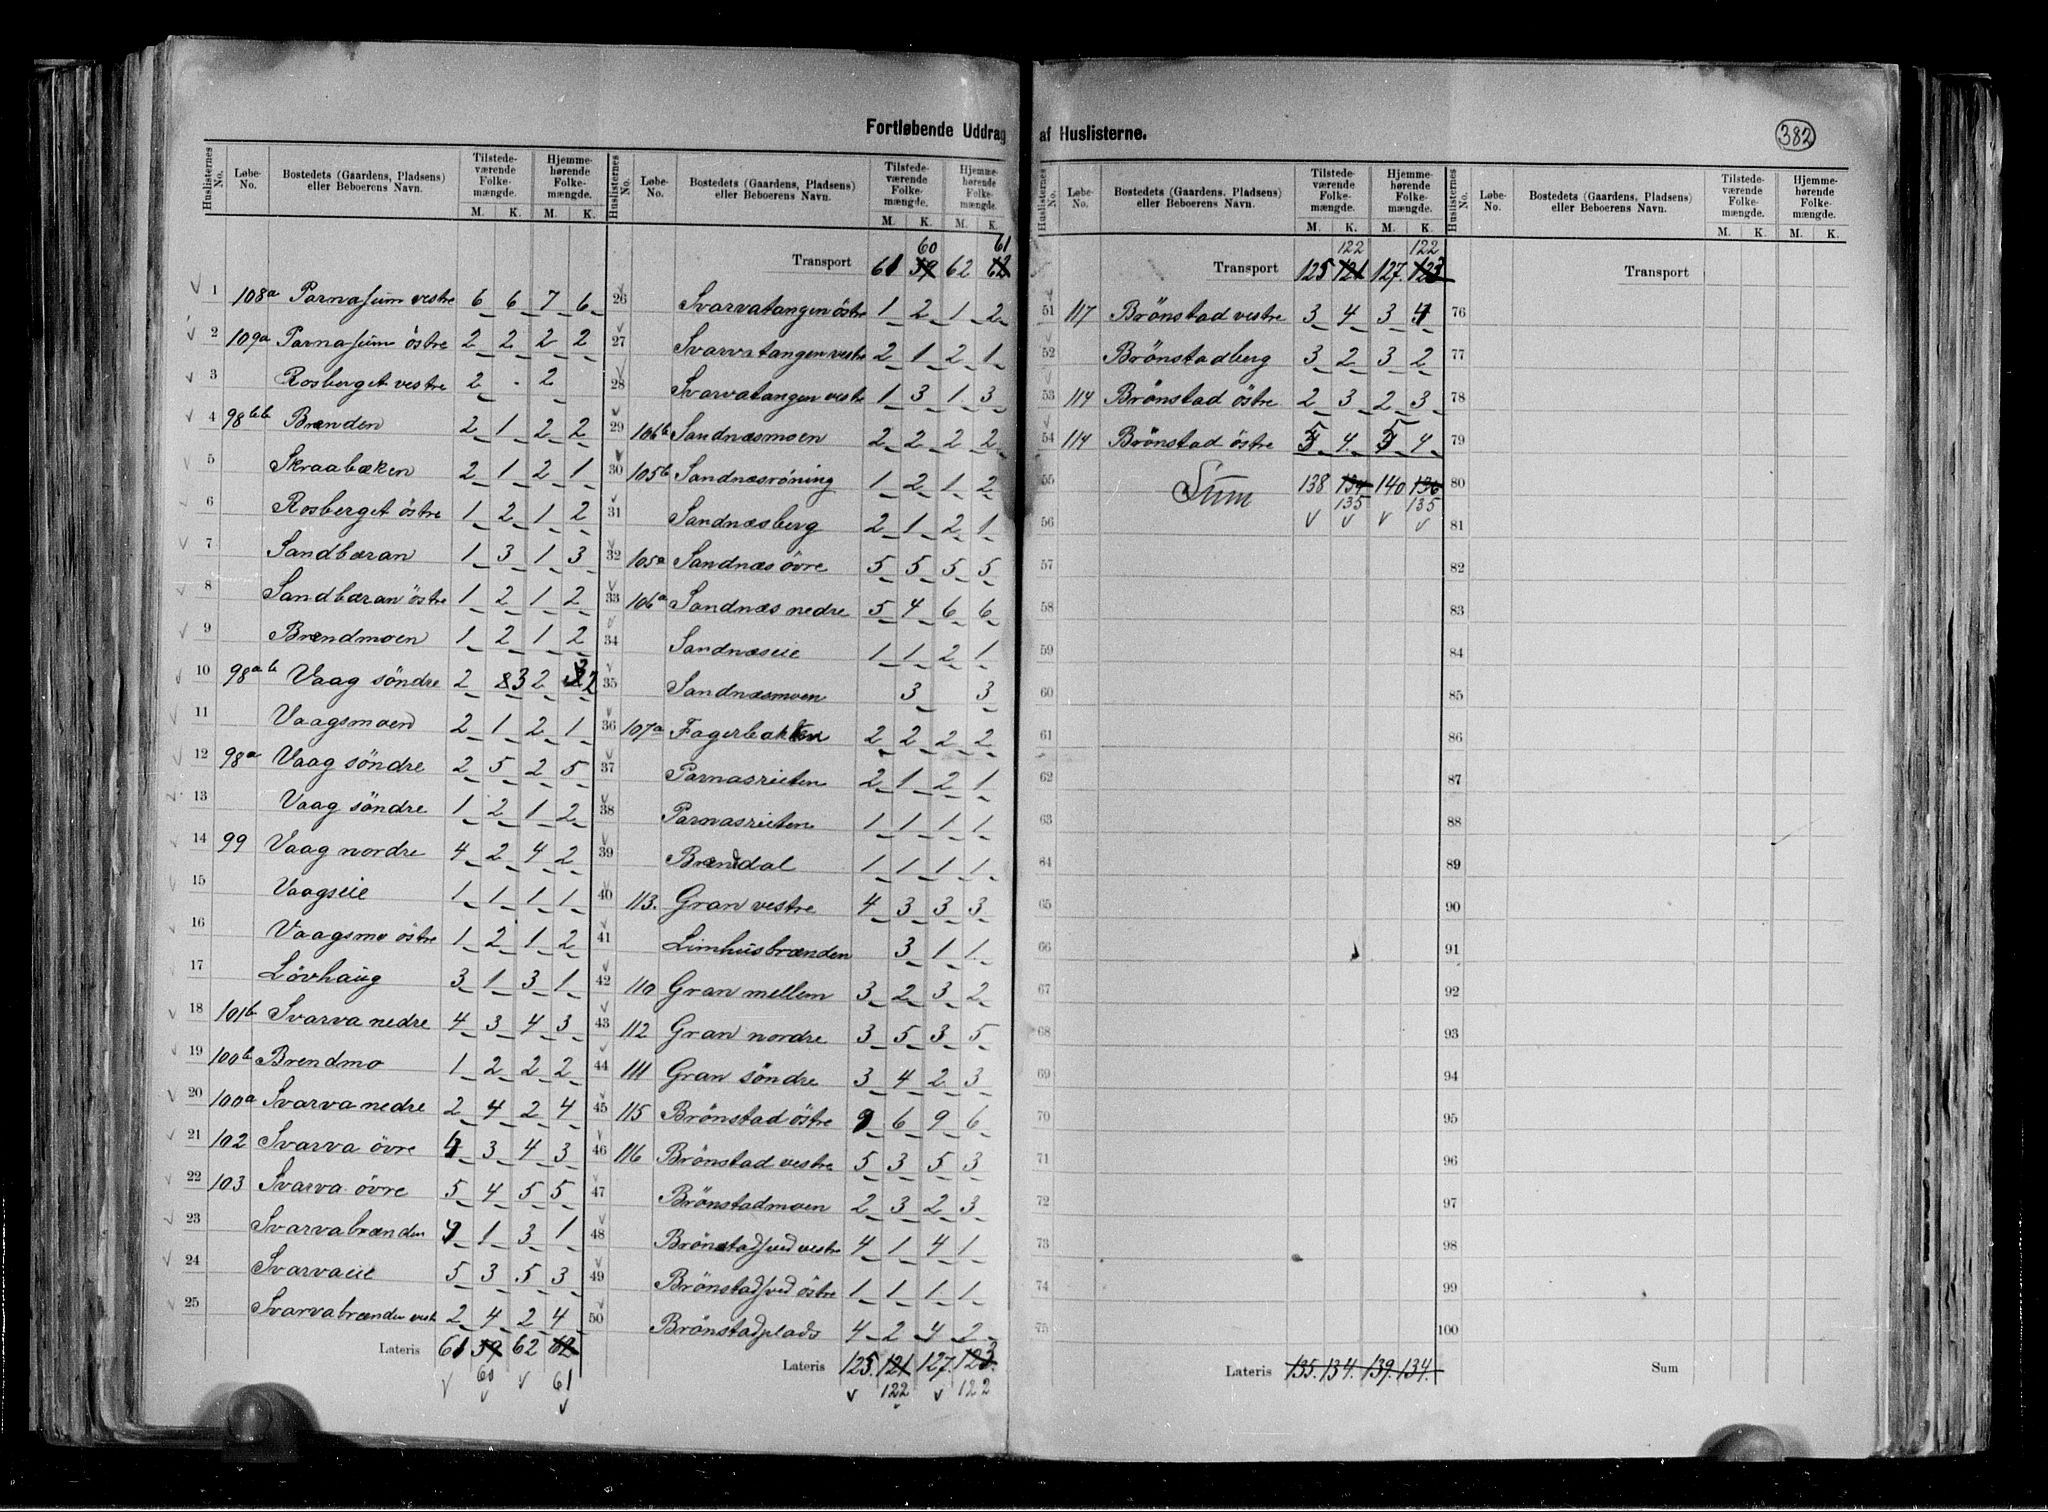 Fortløbende Uddrag af Huslisterne.
382
Huslisternes No. Løbe-No. Bostedets (Gaardens, Pladsens) eller Beboerens Navn. Tilstede-værende Folke-mængde. M. K. Hjemme-hørende Folke-mængde. M. K.
1 108a Parnasum vestre 6 6 7 6
2 109a Parnasum östre 2 2 2 2
3 Rosberget vestre 2 . 2
4 98bb Brænden 2 1 2 2
5 Skraabækken 2 1 2 1
6 Rosberget östre 1 2 1 2
7 Sandbæran 1 3 1 3
8 Sandbæran östre 1 2 1 2
9 Brændmoen 1 2 1 2
10 98ab Vaag söndre 2 3 2 2
11 Vaagsmoen 2 1 2 1
12 98a Vaag söndre 2 5 2 5
13 Vaag söndre 1 2 1 2
14 99 Vaag nordre 4 2 4 2
15 Vaagseie 1 1 1 1
16 Vaagsmo östre 1 2 1 2
17 Lövhaug 3 1 3 1
18 101b Svarva nedre 4 3 4 3
19 100b Brendmo 1 2 2 2
20 100a Svarva nedre 2 4 2 4
21 102 Svarva övre 4 3 4 3
22 103 Svarva övre 5 4 5 5
23 Svarvabrænden 1 3 1
24 Svarvaeie 5 3 5 3
25 Svarvabrænden vest 2 4 2 4
Lateris 61 59 62 62
60 61
Huslisternes No. Løbe-No. Bostedets (Gaardens, Pladsens) eller Beboerens Navn. Tilstede-værende Folke-mængde. M. K. Hjemme-hørende Folke-mængde. M. K.
60 61
Transport 61 59 62 62
26 Svarvatangen östre 1 2 1 2
27 Svarvatangen vestre 2 1 2 1
28 Svarvatangen vestre 1 3 1 3
29 106b Sandnæsmoen 2 2 2 2
30 105b Sandnæsröning 1 2 1 2
31 Sandnæsberg 2 1 2 1
32 105a Sandnæs övre 5 5 5 5
33 106a Sandnæs nedre 5 4 6 6
34 Sandnæseie 1 1 2 1
35 Sandnæsmoen 3 3
36 107a Fagerbakken 2 2 2 2
37 Parnasvieten 2 1 2 1
38 Parnasvieten 1 1 1 1
39 Brændal 1 1 1 1
40 113. Gran vestre 4 3 3 3
41 Limhusbrænden 3 1 1
42 110 Gran mellem 3 2 3 2
43 112 Gran nordre 3 5 3 5
44 111 Gran söndre 3 4 2 3
45 115 Brönstad östre 9 6 9 6
46 116 Brönstad vestre 5 3 5 3
47 Brönstadmoen 2 3 2 3
48 Brönstadsved vestre 4 1 4 1
49 Brönstadsved östre 1 1 1 1
50 Brönstadplads 4 2 4 2
Lateris 125. 121 127. 123.
122 122
Huslisternes No. Løbe-No. Bostedets (Gaardens, Pladsens) eller Beboerens Navn. Tilstede-værende Folke-mængde. M. K. Hjemme-hørende Folke-mængde. M. K.
122 122
Transport 125 121 127. 123
51 117 Brönstad vestre 3 4 3 4
52 Brönstadberg 3 2 3 2
53 114 Brönstad östre 2 3 2 3
54 114 Brönstad östre 5 4 5 4
55 Sum 138 134 140 136
56 135 135
57
58
59
60
61
62
63
64
65
66
67
68
69
70
71
72
73
74
75
Lateris 135. 134. 139. 134.
Huslisternes No. Løbe-No. Bostedets (Gaardens, Pladsens) eller Beboerens Navn. Tilstede-værende Folke-mængde. M. K. Hjemme-hørende Folke-mængde. M. K.
Transport
76
77
78
79
80
81
82
83
84
85
86
87
88
89
90
91
92
93
94
95
96
97
98
99
100
Sum